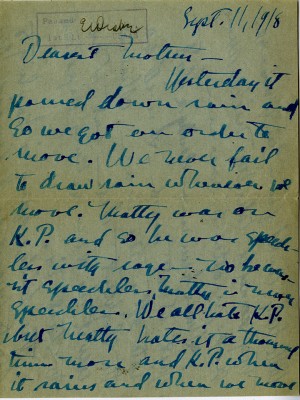 Sept. 11, 1918
Dearest Mother —
Yesterday it
poured down rain and
so we got our order to
move. We never fail
to draw rain whenever we
move. Matty was on
K.P. and so he was speech-
less with rage — no he was-
n't speechless, Matty is never
speechless. We all hate K.P.
but Matty hates it a thousand
times more and K.P. when
it rains and when we move